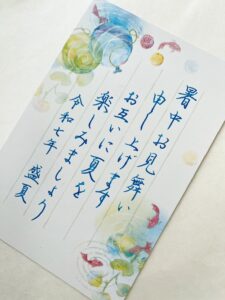 暑中お見舞い
申し上げます
お互いに夏を
楽しみましょう
令和七年 盛夏